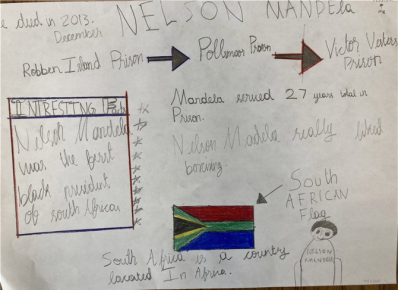 NELSON MANDEla
e died in 2013.
December
Robben Island Prison
Pollsmoor Prison
Victor Verster
Prison
INTRESTING Facts
Nelson Mandela
was the first
black president
of south Africa
Mandela served 27 years total in
Prison.
Nelson Madela really liked
boxing.
SOUTH
AFRICAN
Flag
NELSON
MANDELA
South Africa is a country
located In Africa.